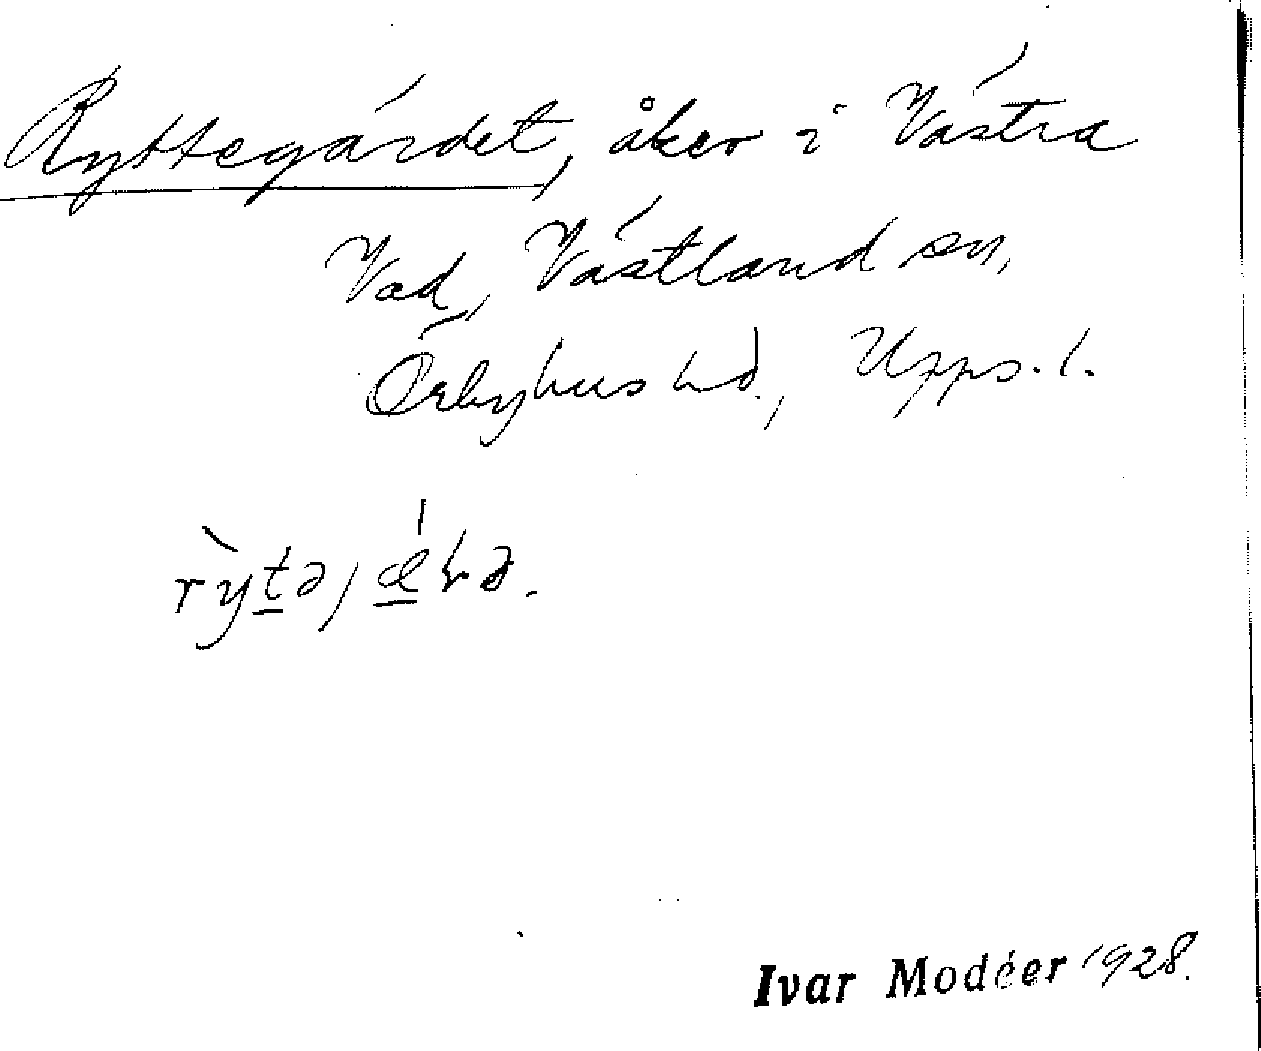 Ryttegärdet, åker i Västra
Vad, Västland sn,
Örbyhus hd., Upps. l.
Ivar Modéer 1928.